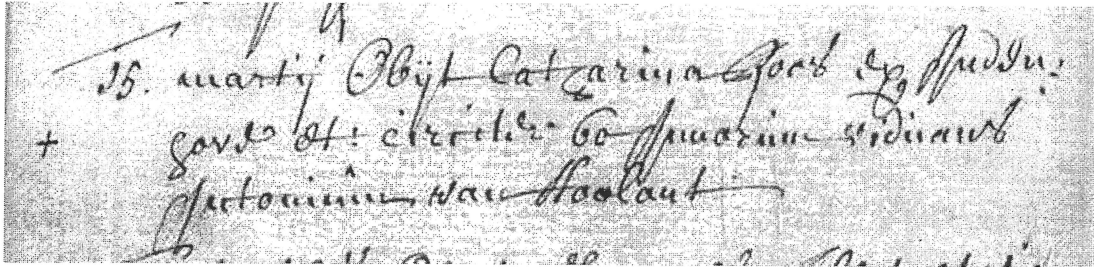 15. martij Obijt Catharina Joos ex Auden:
+ gove et: circiter 60 Annorum viduans
Antonium van Hoolant